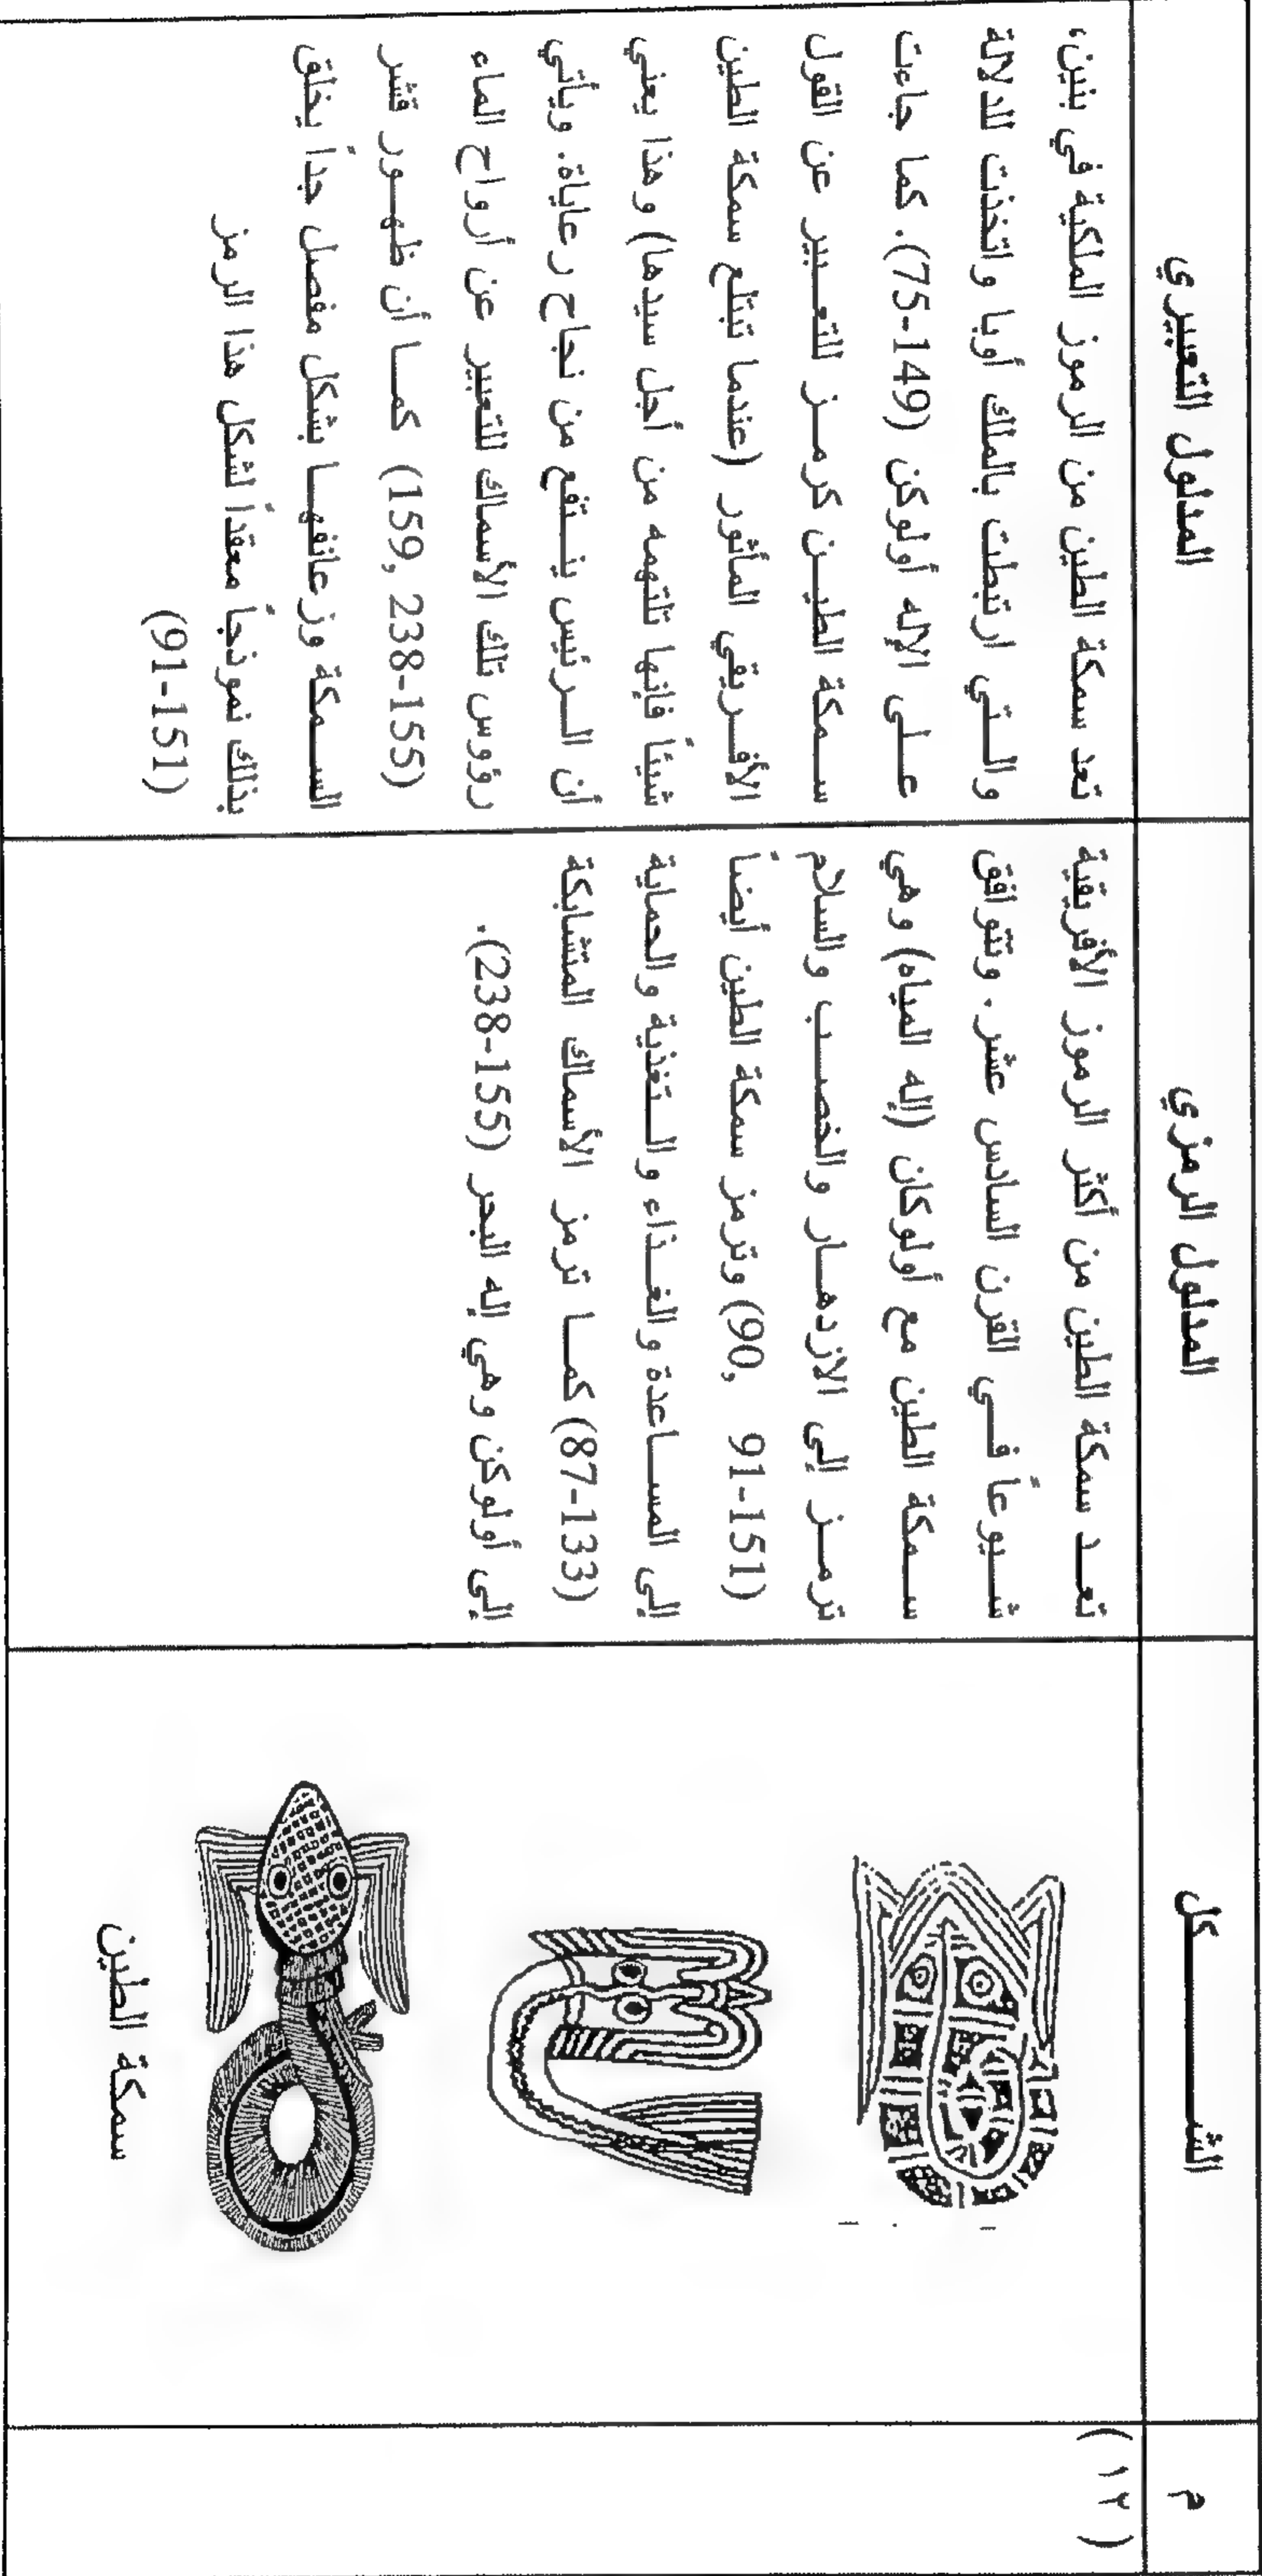 م
الشـــــــكل
المدلول الرمزي
المدلول التعبيري
( ١٢ )
سمكة الطين
تعـــد سمكة الطين من أكثر الرموز الأفريقية
شـــيوعاً فـــي القرن السادس عشر. وتتوافق
ســـمكة الطين مع أولوكان (إله المياه) وهي
ترمـــز إلى الازدهـــار والخصـــب والسلام
(90, 91-151) وترمز سمكة الطين أيضاً
إلى المســـاعدة والغـــذاء والـــتغذية والحماية
(87-133) كمـــا ترمز الأسماك المتشابكة
إلى أولوكن وهي إله البحر (155-238).
تعد سمكة الطين من الرموز الملكية في بنين،
والـــتي ارتبطت بالملك أوبا واتخذت للدلالة
عـــلى الإله أولوكن (149-75). كما جاءت
ســـمكة الطيـــن كرمـــز للتعـــبير عن القول
الأفـــريقي المأثور (عندما تبتلع سمكة الطين
شيئاً فإنها تلتهمه من أجل سيدها) وهذا يعني
أن الـــرئيس ينـــتفع من نجاح رعاياة. ويأتي
رؤوس تلك الأسماك للتعبير عن أرواح الماء
(155-238 ,159) كمـــا أن ظهـــور قشر
الســـمكة وزعانفهـــا بشكل مفصل جداً يخلق
بذلك نموذجاً معقداً لشكل هذا الرمز
(91-151)